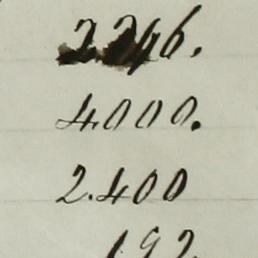 2.246.
4.000.
2.400
192.